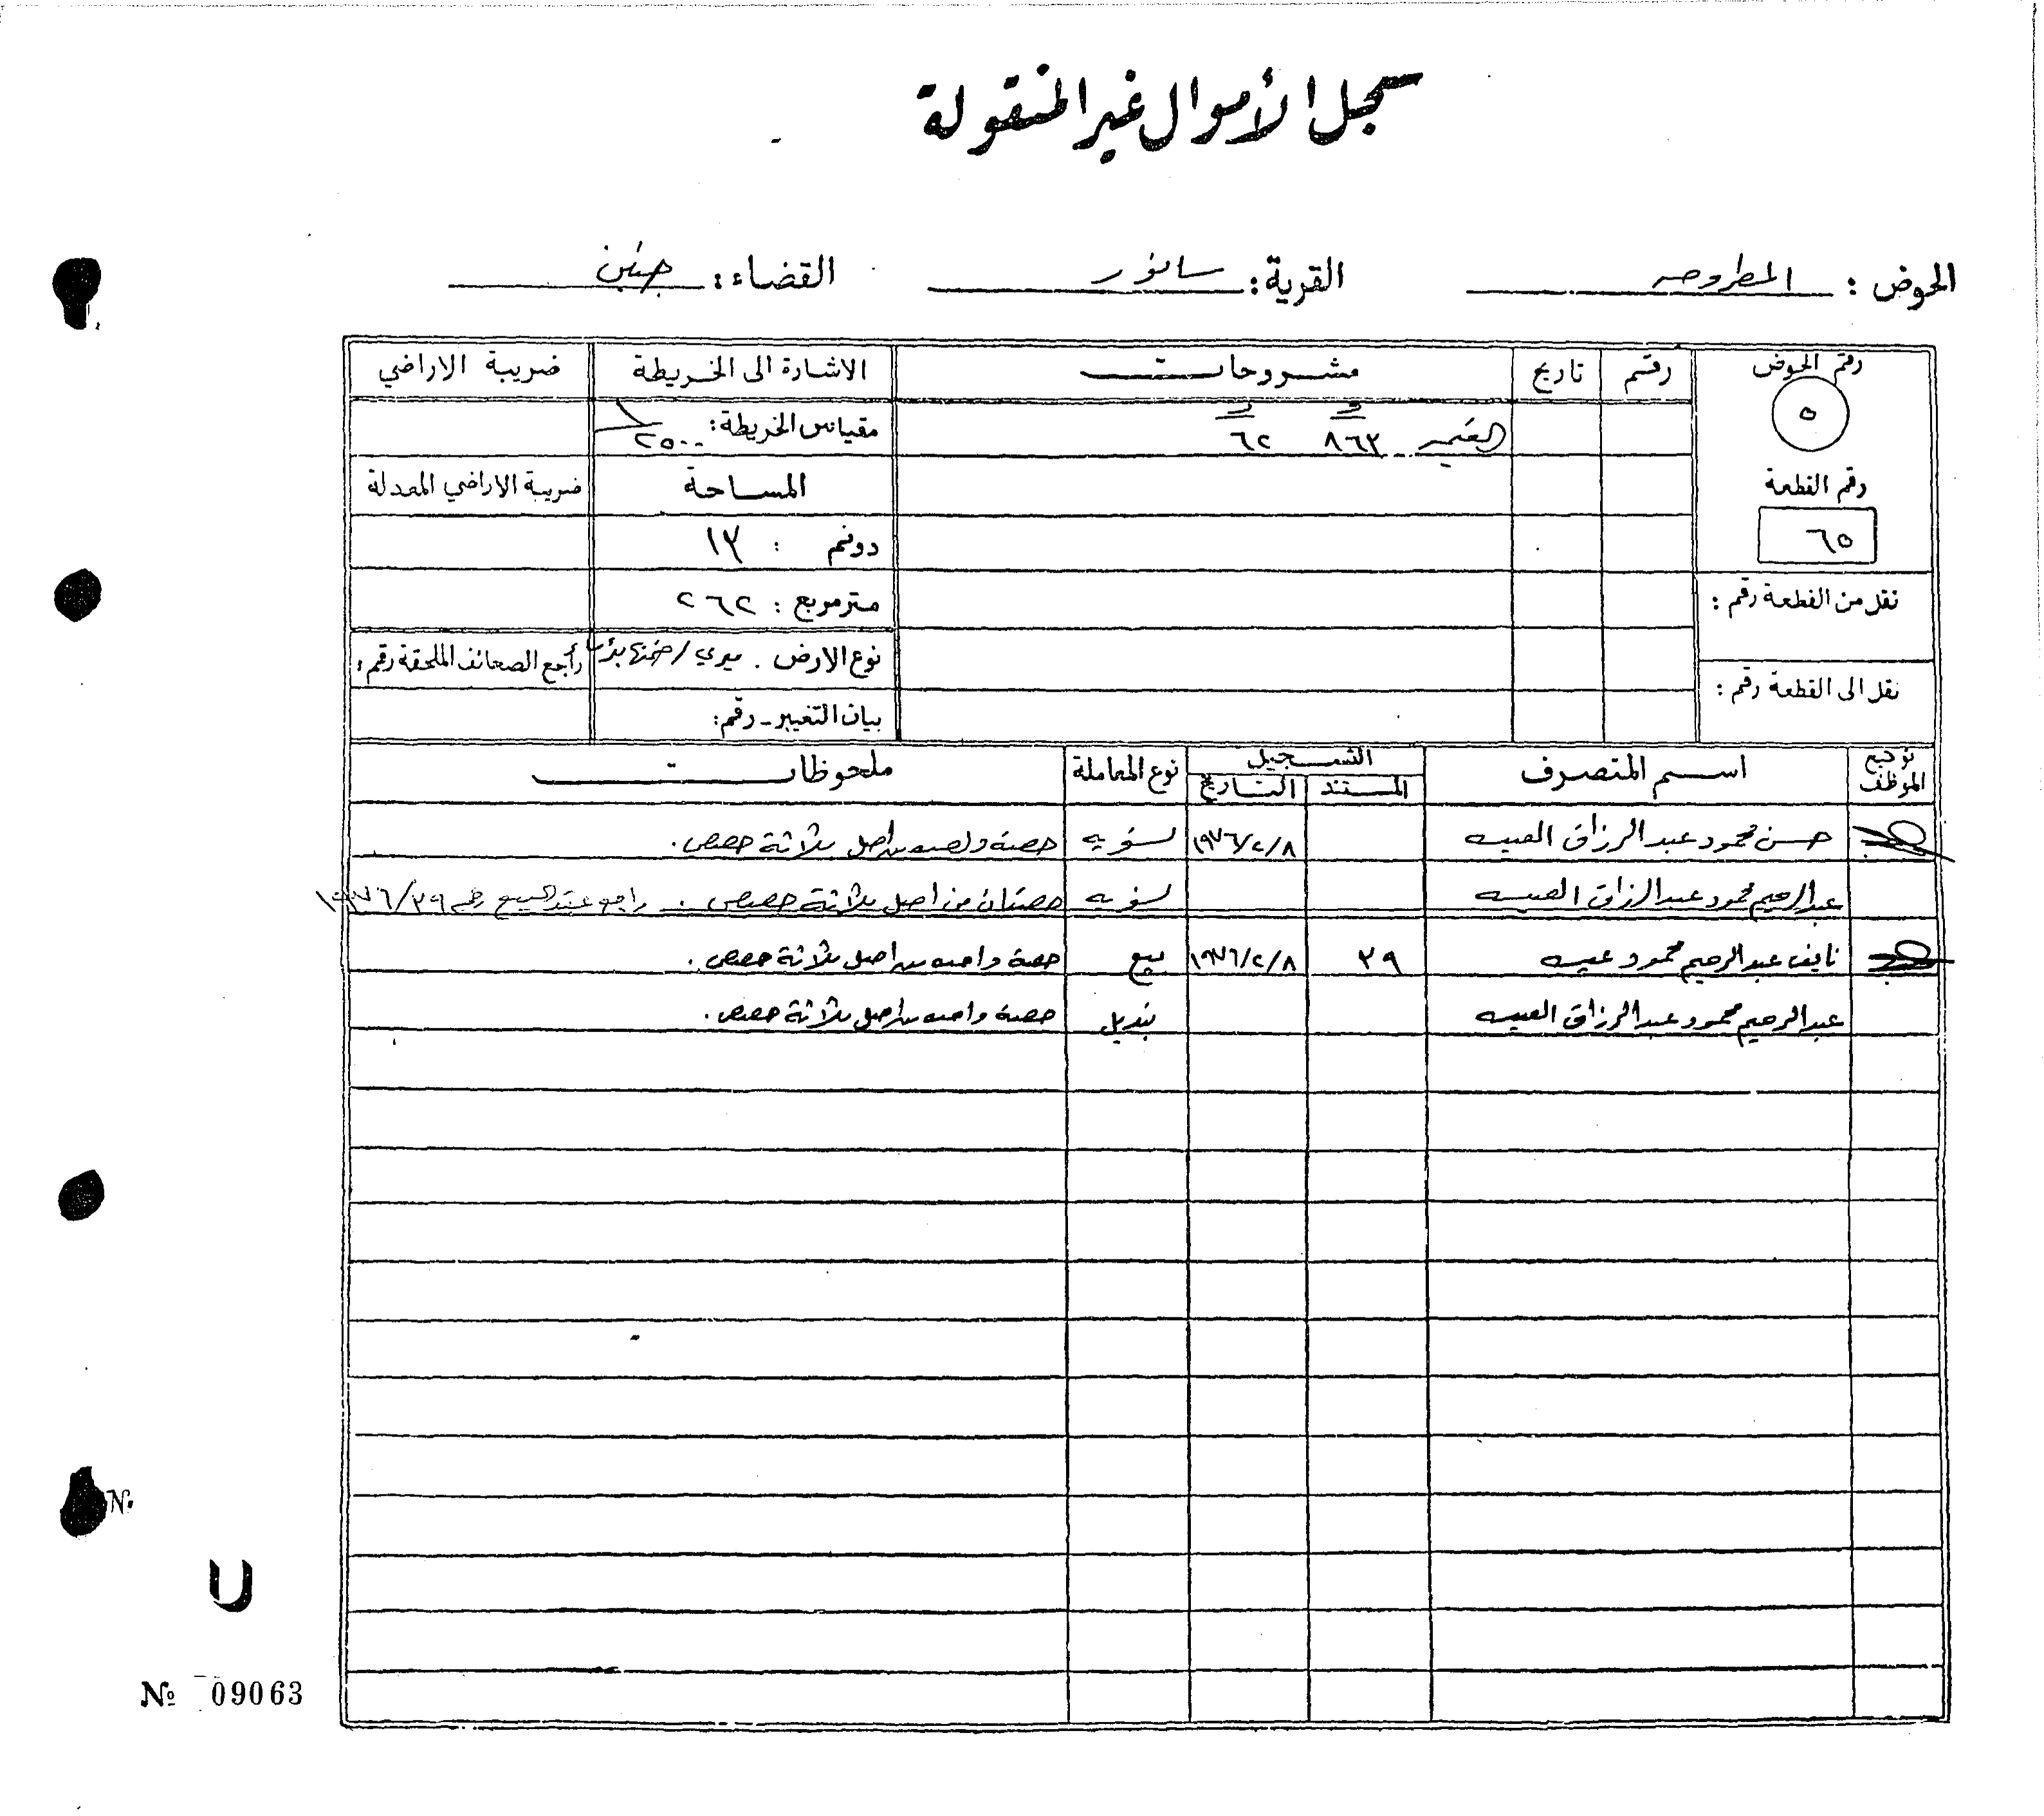 سجل الأموال غير المنقولة
الحوض : المطروحه القرية : سانور القضاء : جنين
رقم الحوض رقم تاريخ مشروحات الاشارة الى الخريطة ضريبة الاراضي
٥ و د مقياس الخريطة : ١/٢٥٠٠
٨٦٣ ٦٢
رقم القطعة المساحة ضريبة الاراضي المعدلة
٦٥ دونم : ١٣
نقل من القطعة رقم : متر مربع : ٢٦٢
نوع الارض . ميري / راجع الصحائف الملحقة رقم :
نقل الى القطعة رقم : بيان التغيير - رقم :
توقيع الموظف اسم المتصرف التسجيل نوع المعاملة ملحوظات
المستند التاريخ
حسن محمود عبد الرزاق العيسه ١٩٧٦/٢/٨ تسويه حصة واحده من اصل ثلاثة حصص .
عبد الرحيم محمود عبد الرزاق العيسه تسويه حصتان من اصل ثلاثة حصص . راجع عقد البيع رقم ١٩٧٦/٣٩
نايف عبد الرحيم محمود عيسه ٣٩ ١٩٧٦/٢/٨ بيع حصة واحده من اصل ثلاثة حصص .
عبد الرحيم محمود عبد الرزاق العيسه تبديل حصة واحده من اصل ثلاثة حصص .
№
U
№ 09063